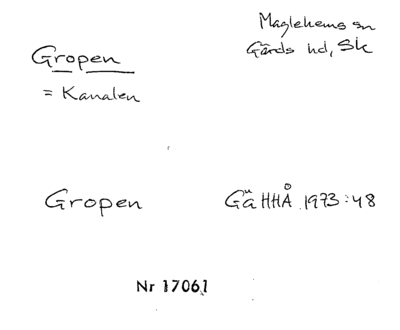 Maglehems sn
Gärds hd, Sk
Gropen
= Kanalen
Gropen GäHHÅ 1973:48
Nr 17061